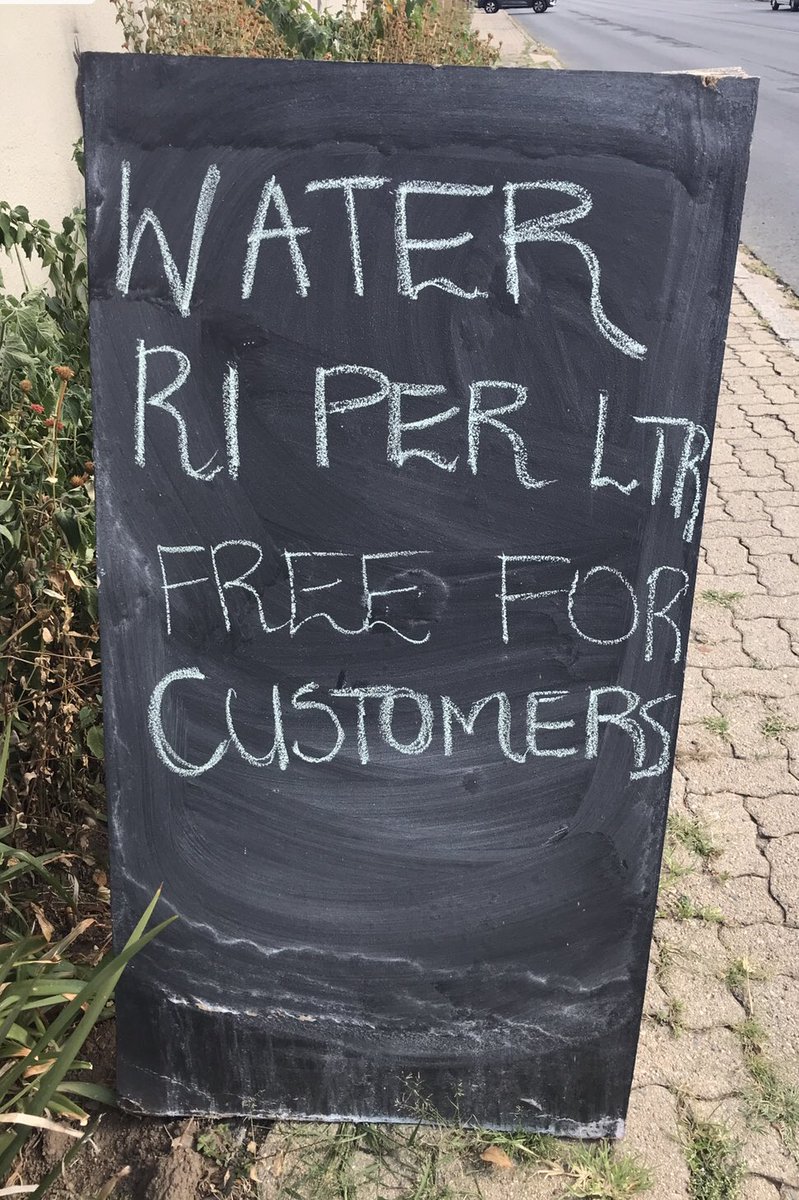 WATER
R1 PER LTR
FREE FOR
CUSTOMERS